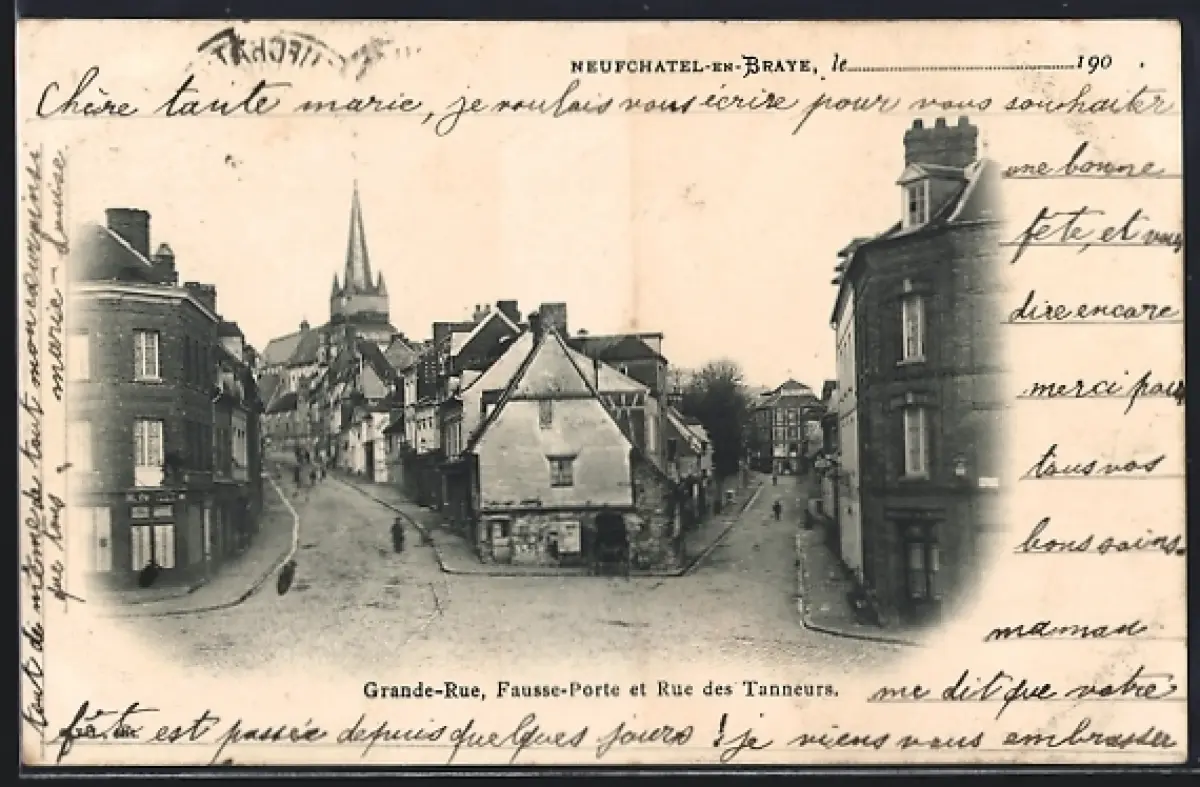 NEUFCHATEL-EN-BRAYE, le 190 .
Chère tante marie, je voulais vous écrire pour vous souhaiter
une bonne
fête, et vous
dire encore
merci pour
tous vos
bons soins.
maman
me dit que votre
Grande-Rue, Fausse-Porte et Rue des Tanneurs.
fête est passée depuis quelques jours ! je viens vous embrasser
tout de même de tout mon cœur
que vous marie - Louise